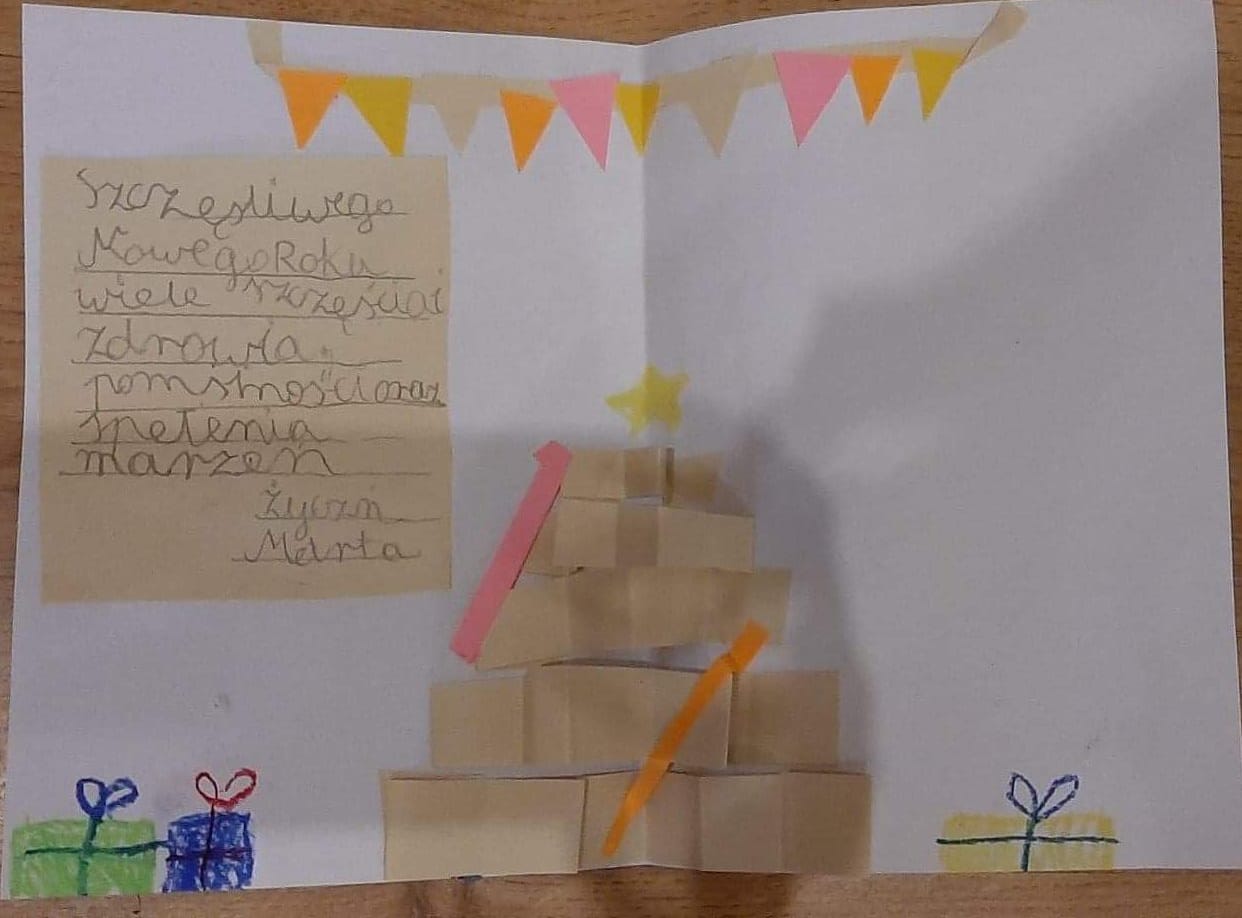 Szczęśliwego
Nowego Roku
wiele szczęścia
zdrowia,
pomślności oraz
spełenia
marzeń
Życzń
Marta